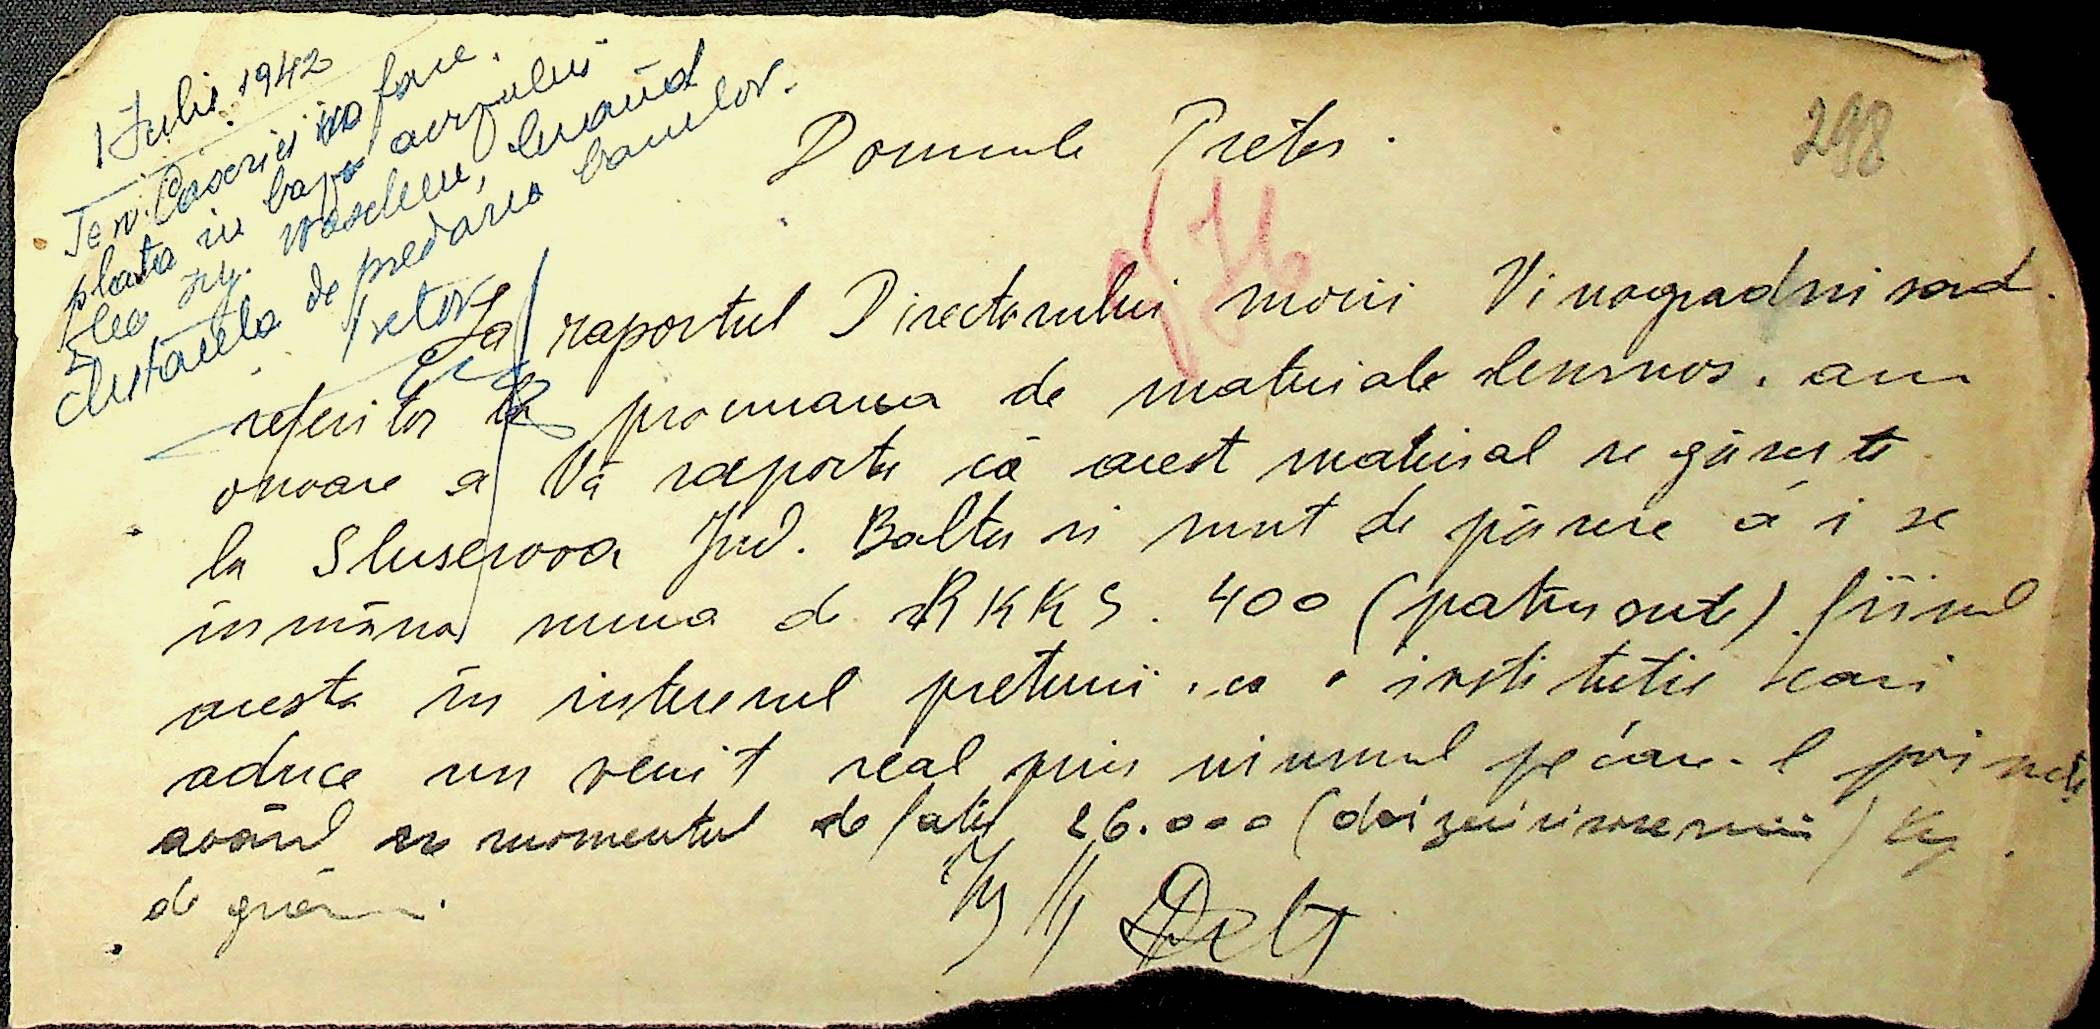 1 Iulie 1942
Serv. Casieriei va face
plata in baza avizului
luând
de predarea banilor.
Pretor
298
Domnule Pretor.
La raportul Directorului morii Vinogradni sad.
referitor la procurarea de materiale lemnos. am
onoare a Vă raporta că acest material se găseste
la Sluserova Jud. Balta si sunt de părere a i se
inmâna suma de RKKS. 400 (patru sute) fiind
aceasta în interesul preturii. ca o institutie care
aduce un venit real prin uiumul pe care-l prinde
având in momentul de fată 26.000 (douăzecisisase mii) Kg.
de grâu.